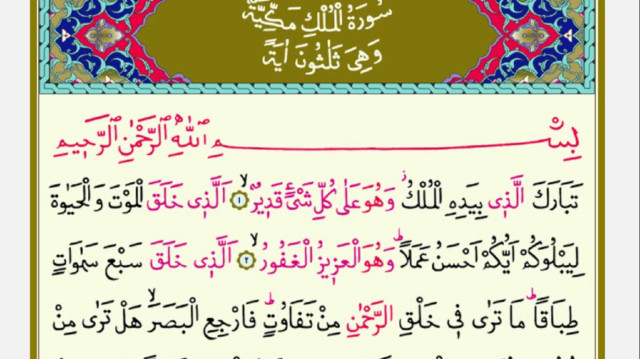 سُورَةُ الْمُلْكِ مَكِّيَّةٌ
وَهِيَ ثَلٰثُونَ اٰيَةً
بِسْمِ اللّٰهِ الرَّحْمٰنِ الرَّحِيمِ
تَبَارَكَ الَّذ۪ي بِيَدِهِ الْمُلْكُۘ وَهُوَ عَلٰى كُلِّ شَيْءٍ قَد۪يرٌۙ ١ اَلَّذ۪ي خَلَقَ الْمَوْتَ وَالْحَيٰوةَ
لِيَبْلُوَكُمْ اَيُّكُمْ اَحْسَنُ عَمَلًاۜ وَهُوَ الْعَز۪يزُ الْغَفُورُۙ ٢ اَلَّذ۪ي خَلَقَ سَبْعَ سَمٰوَاتٍ
طِبَاقًاۜ مَا تَرٰى ف۪ي خَلْقِ الرَّحْمٰنِ مِنْ تَفَاوُتٍۜ فَارْجِعِ الْبَصَرَۙ هَلْ تَرٰى مِنْ